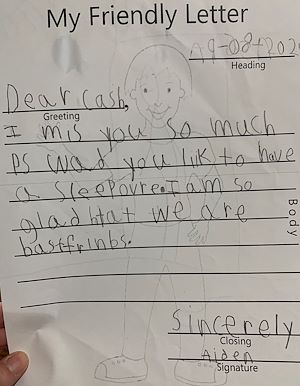 My Friendly Letter
A9-08-202
Heading
Dear Cash,
Greeting
I mis you so much
PS wad you lik to have
a sleepovre. I am so
glad htat we are
bastfrinbs.
Body
Sincerely
Closing
Aiden
Signature